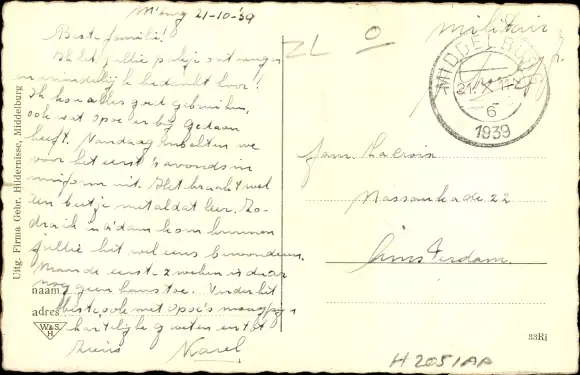 M'burg 21-10-'39
Beste familie!
Ik heb jullie pakje ontvangen
en vriendelijk bedankt hoor!
Ik kon alles goed gebruiken,
ook wat opoe er bij gedaan
heeft. Vandaag we
voor het eerst 's avonds in
uniform uit. Het kraakt wel
een beetje met al dat leer. Zo-
dra ik in A'dam kom kunnen
jullie het wel eens bewonderen.
Maar de eerste 2 weken is daar
nog geen kans toe. Verder het
beste, ook met opoe's
hartelijke groeten en tot
ziens Karel
Uitg. Firma Gebr. Hildernisse, Middelburg
naam
adres
W&S.
H.
ZL O
Militair
MIDDELBURG
21.X
6
1939
fam. Lacroix
Nassaukade 22
Amsterdam.
33Ri
H2051AA